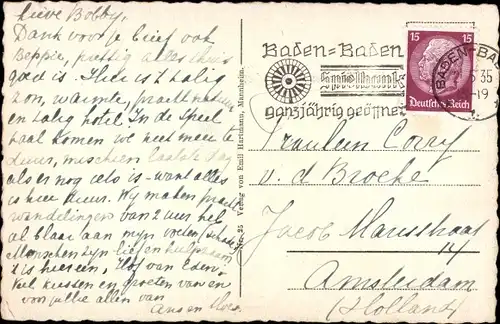 Lieve Bobby,
Dank voor je brief ook
Beppie, prettig alles thuis
goed is. Hier is 't zalig
zon, warmte, pracht natuur
en zalig hotel. In de Speel
zaal komen we niet meer te
duur, misschien laatste dag
als er nog iets is - want alles
is hier duur. Wij maken pracht
wandelingen van 2 uur heb
al blaar aan mijn voeten
Menschen zijn lief en hulpzaam
't is hier een Hof van Eden.
Veel kussen en groeten van en
voor jullie allen van
Ans en
Nr. 35 Verlag von Emil Hartmann, Mannheim.
Baden-Baden
ganzjährig geöffnet
BADEN-BA
35
-19
15 15
Deutsches Reich
Fräulein Corry
v. d. Broeke
Jacob Marisstraat
14
Amsterdam
(Holland)